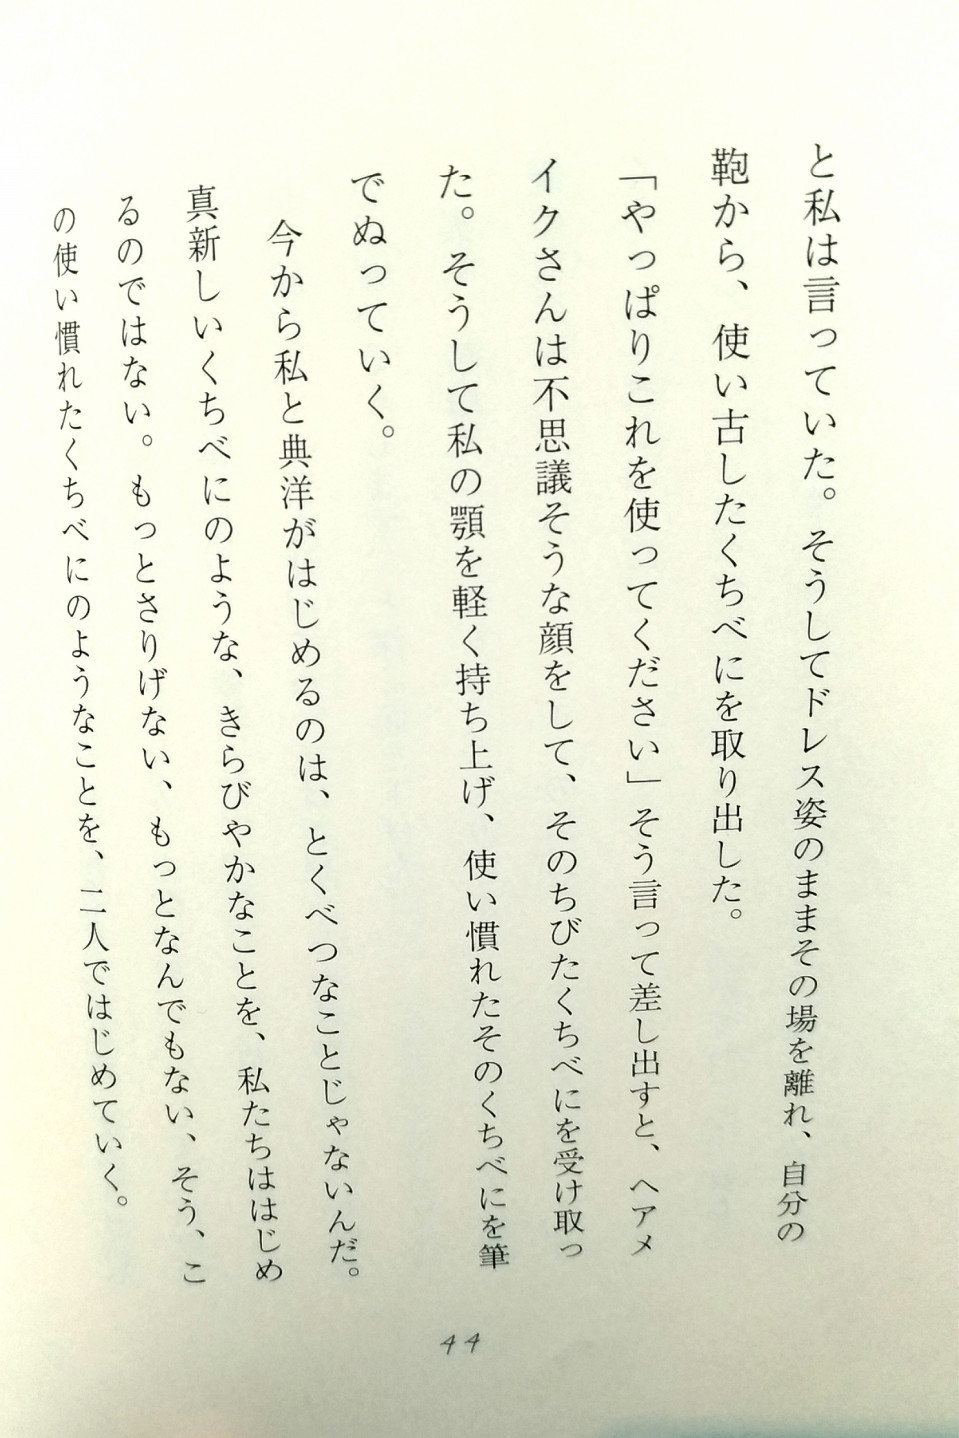 と私は言っていた。そうしてドレス姿のままその場を離れ、自分の
鞄から、使い古したくちべにを取り出した。
「やっぱりこれを使ってください」そう言って差し出すと、ヘアメ
イクさんは不思議そうな顔をして、そのちびたくちべにを受け取っ
た。そうして私の顎を軽く持ち上げ、使い慣れたそのくちべにを筆
でぬっていく。
今から私と典洋がはじめるのは、とくべつなことじゃないんだ。
真新しいくちべにのような、きらびやかなことを、私たちははじめ
るのではない。もっとさりげない、もっとなんでもない、そう、こ
の使い慣れたくちべにのようなことを、二人ではじめていく。
44